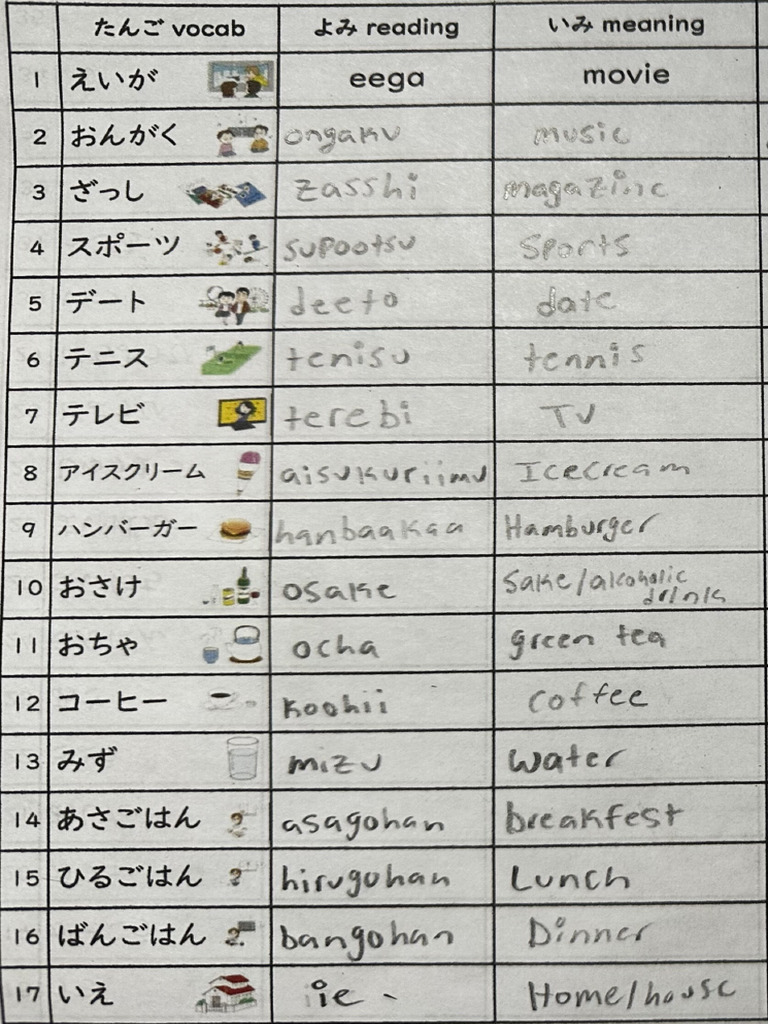 たんご vocab よみ reading いみ meaning
1 えいが eega movie
2 おんがく ongaku music
3 ざっし zasshi magazine
4 スポーツ supootsu Sports
5 デート deeto date
6 テニス tenisu tennis
7 テレビ terebi TV
8 アイスクリーム aisukuriimu Icecream
9 ハンバーガー hanbaakaa Hamburger
10 おさけ osake Sake/alcoholic drink
11 おちゃ ocha green tea
12 コーヒー koohii coffee
13 みず mizu water
14 あさごはん asagohan breakfest
15 ひるごはん hirugohan Lunch
16 ばんごはん bangohan Dinner
17 いえ ie Home/house